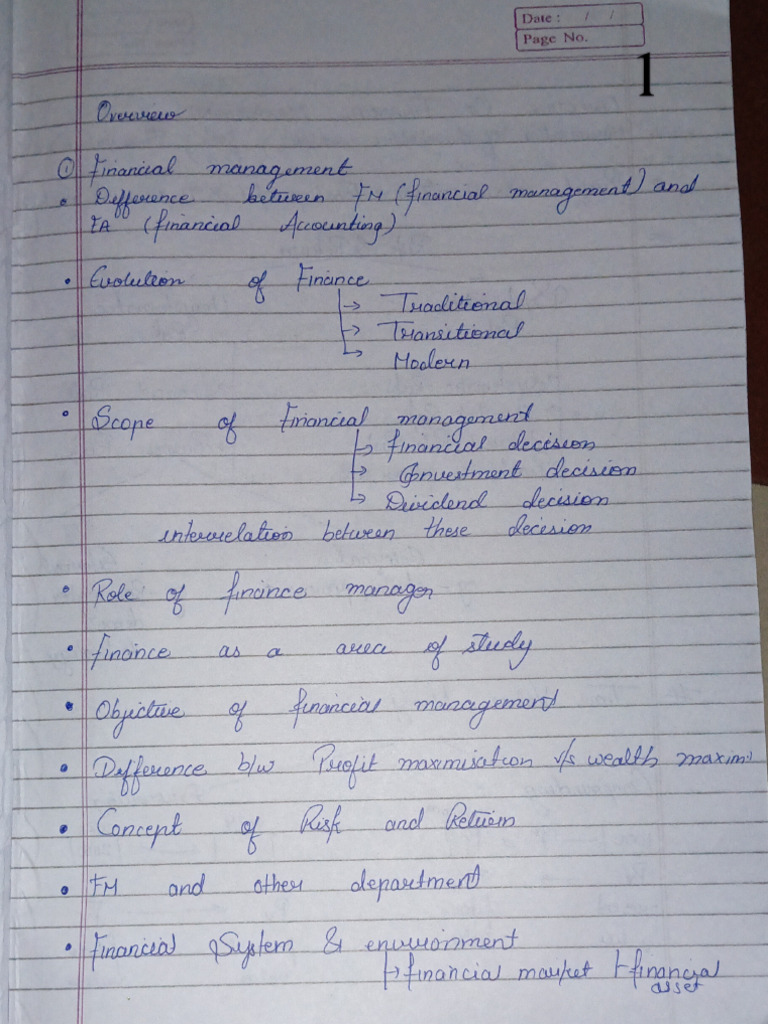 Date : / /
Page No.
1
Overview
① Financial management
• Difference between FM (financial management) and
FA (financial Accounting)
• Evolution of Finance
↳ Traditional
↳ Transitional
↳ Modern
• Scope of Financial management
↳ financial decision
↳ Investment decision
↳ Dividend decision
interrelation between these decision
• Role of finance manager
• finance as a area of study
• Objective of financial management
• Difference b/w Profit maximisation v/s wealth maximi
• Concept of Risk and Return
• FM and other department
• Financial System & environment
↳ financial market ↳ financial
asset